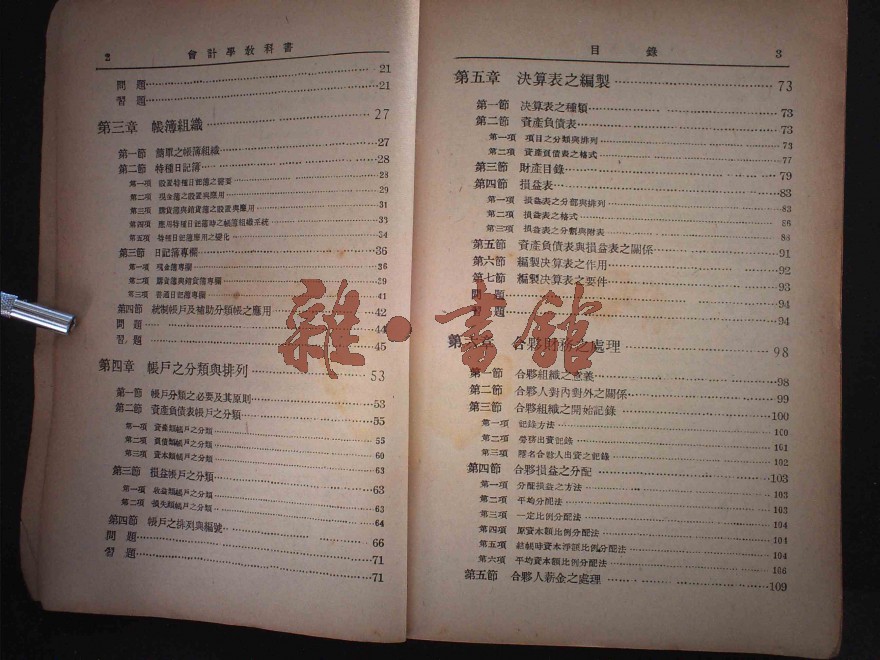 2 會計學教科書
問題 21
習題 21
第三章 帳簿組織 27
第一節 簡單之帳簿組織 27
第二節 特種日記簿 28
第一項 設置特種日記簿之需要 28
第二項 現金簿之設置與應用 29
第三項 購貨簿與銷貨簿之設置與應用 31
第四項 應用特種日記簿時之帳簿組織系統 33
第五項 特種日記簿應用之變化 34
第三節 日記簿專欄 36
第一項 現金簿專欄 36
第二項 購貨簿與銷貨簿專欄 39
第三項 普通日記簿專欄 41
第四節 統制帳戶及補助分類帳之應用 42
問題 44
習題 45
第四章 帳戶之分類與排列 53
第一節 帳戶分類之必要及其原則 53
第二節 資產負債表帳戶之分類 55
第一項 資產類帳戶之分類 55
第二項 負債類帳戶之分類 60
第三項 資本類帳戶之分類 63
第三節 損益帳戶之分類 63
第一項 收益類帳戶之分類 63
第二項 損失類帳戶之分類 64
第四節 帳戶之排列與編號 66
問題 71
習題 71
目錄 3
第五章 決算表之編製 73
第一節 決算表之種類 73
第二節 資產負債表 73
第一項 項目之分類與排列 73
第二項 資產負債表之格式 77
第三節 財產目錄 79
第四節 損益表 83
第一項 損益表之分部與排列 83
第二項 損益表之格式 86
第三項 損益表之分觀與附表 88
第五節 資產負債表與損益表之關係 91
第六節 編製決算表之作用 92
第七節 編製決算表之要件 93
問題 94
習題 94
第六章 合夥財務之處理 98
第一節 合夥組織之意義 98
第二節 合夥人對內對外之關係 99
第三節 合夥組織之開始記錄 100
第一項 記錄方法 100
第二項 勞務出資記錄 101
第三項 隱名合夥人出資之記錄 102
第四節 合夥損益之分配 103
第一項 分配損益之方法 103
第二項 平均分配法 103
第三項 一定比例分配法 104
第四項 原資本額比例分配法 104
第五項 結帳時資本淨額比例分配法 104
第六項 平均資本額比例分配法 106
第五節 合夥人薪金之處理 109
雜·書館